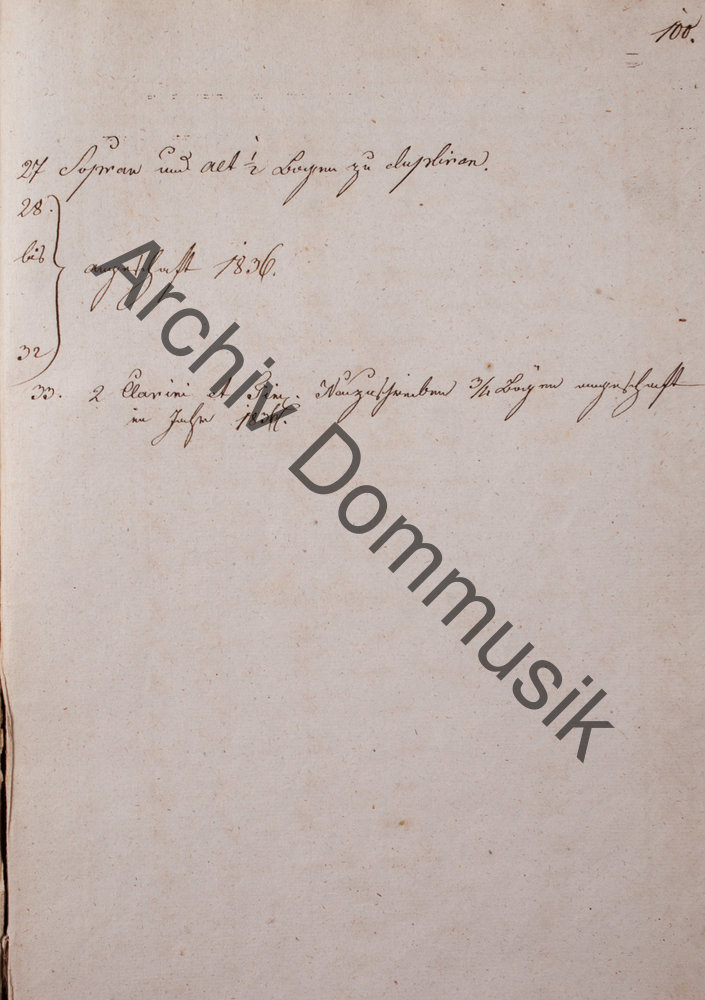 100.
27 Sopran und Alt 1/2 Bogen zu dupliren.
28.
bis angeschaft 1836.
32
33. 2 Clarini et Timp. Neuzuschreiben 3/4 Bögen angeschaft
im Jahr
Archiv Dommusik